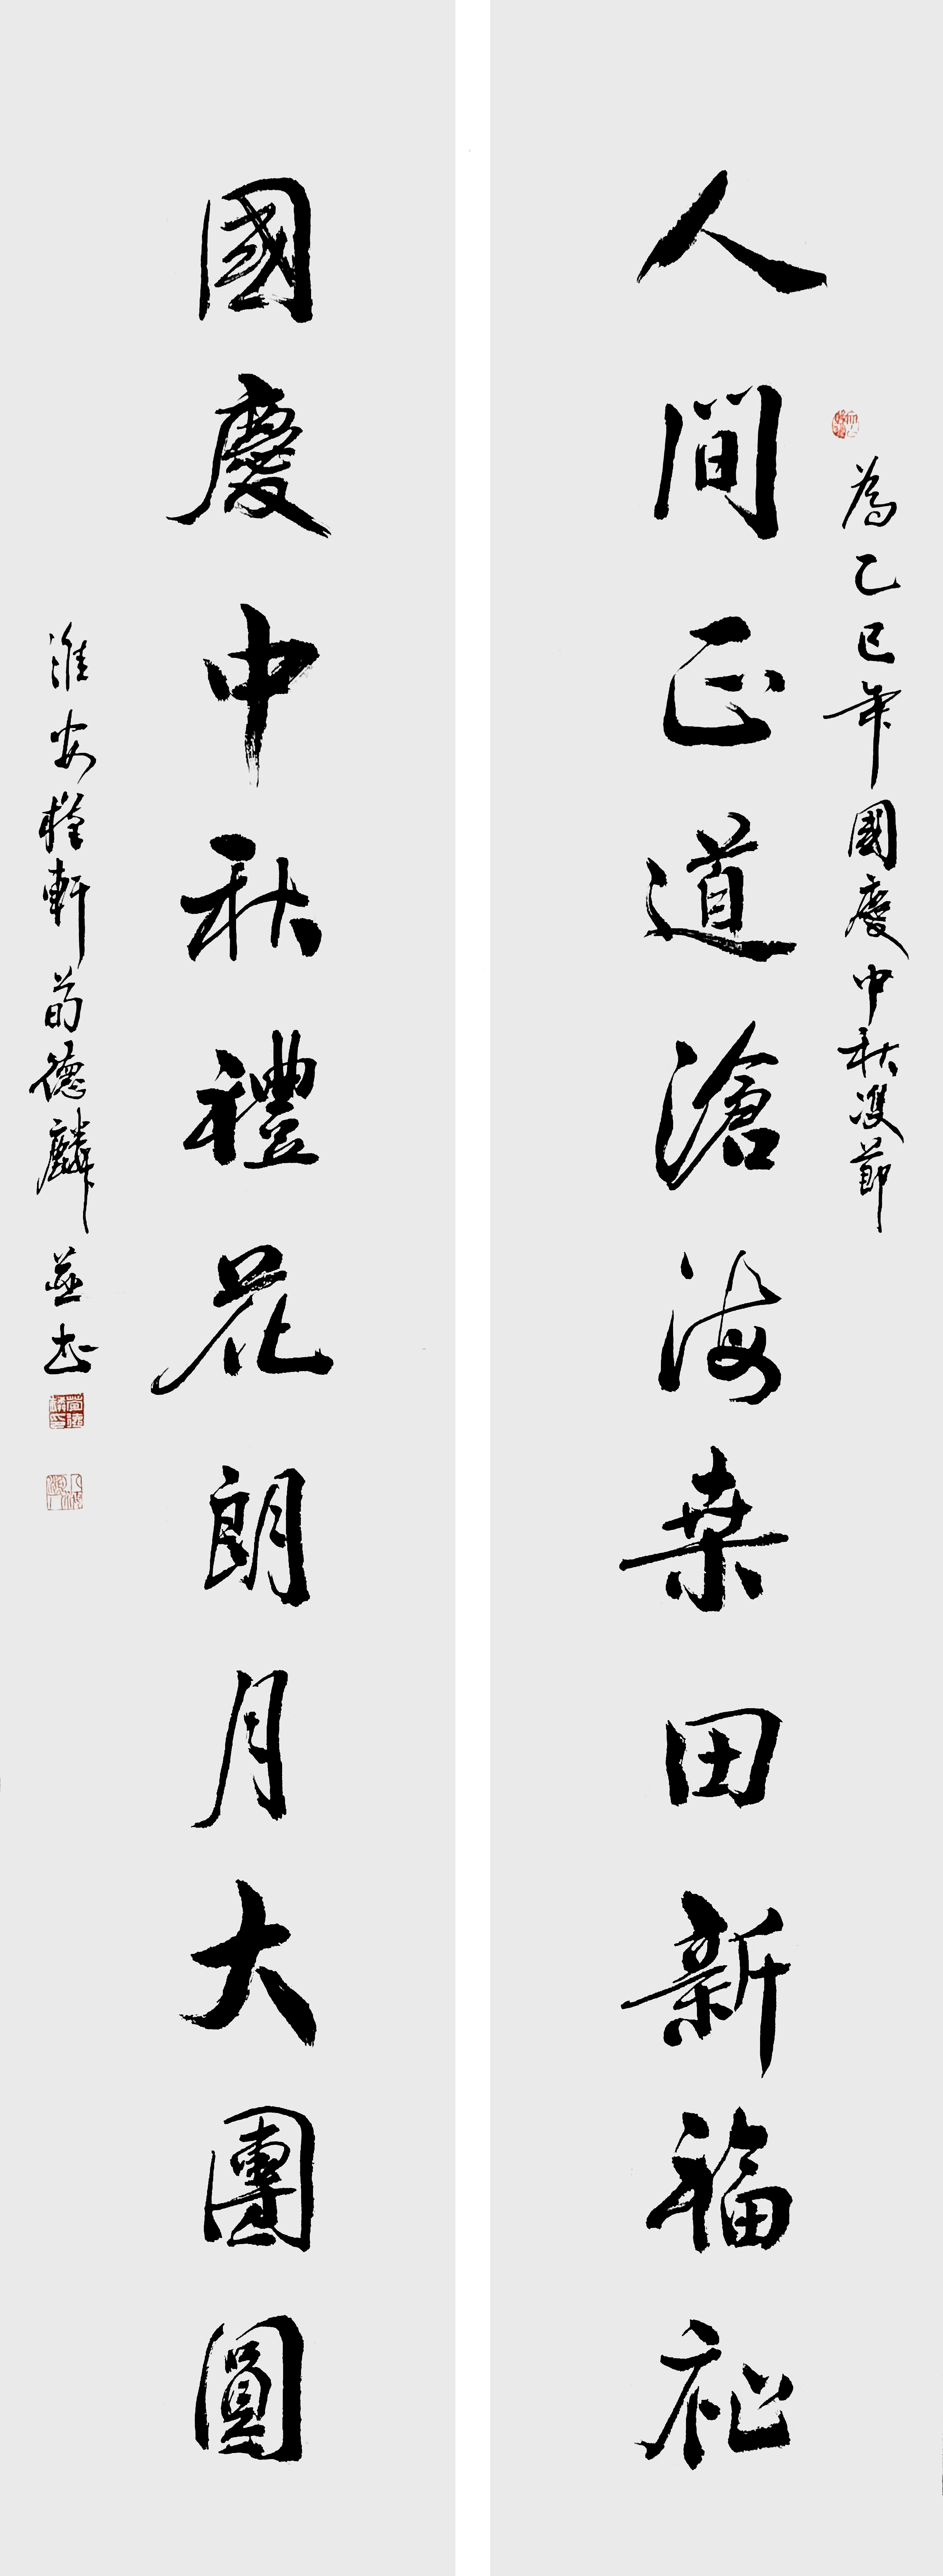 為乙巳年國慶中秋雙節
人間正道滄海桒田新福祉
國慶中秋禮花朗月大團圓
淮安槿軒荀德麟並書